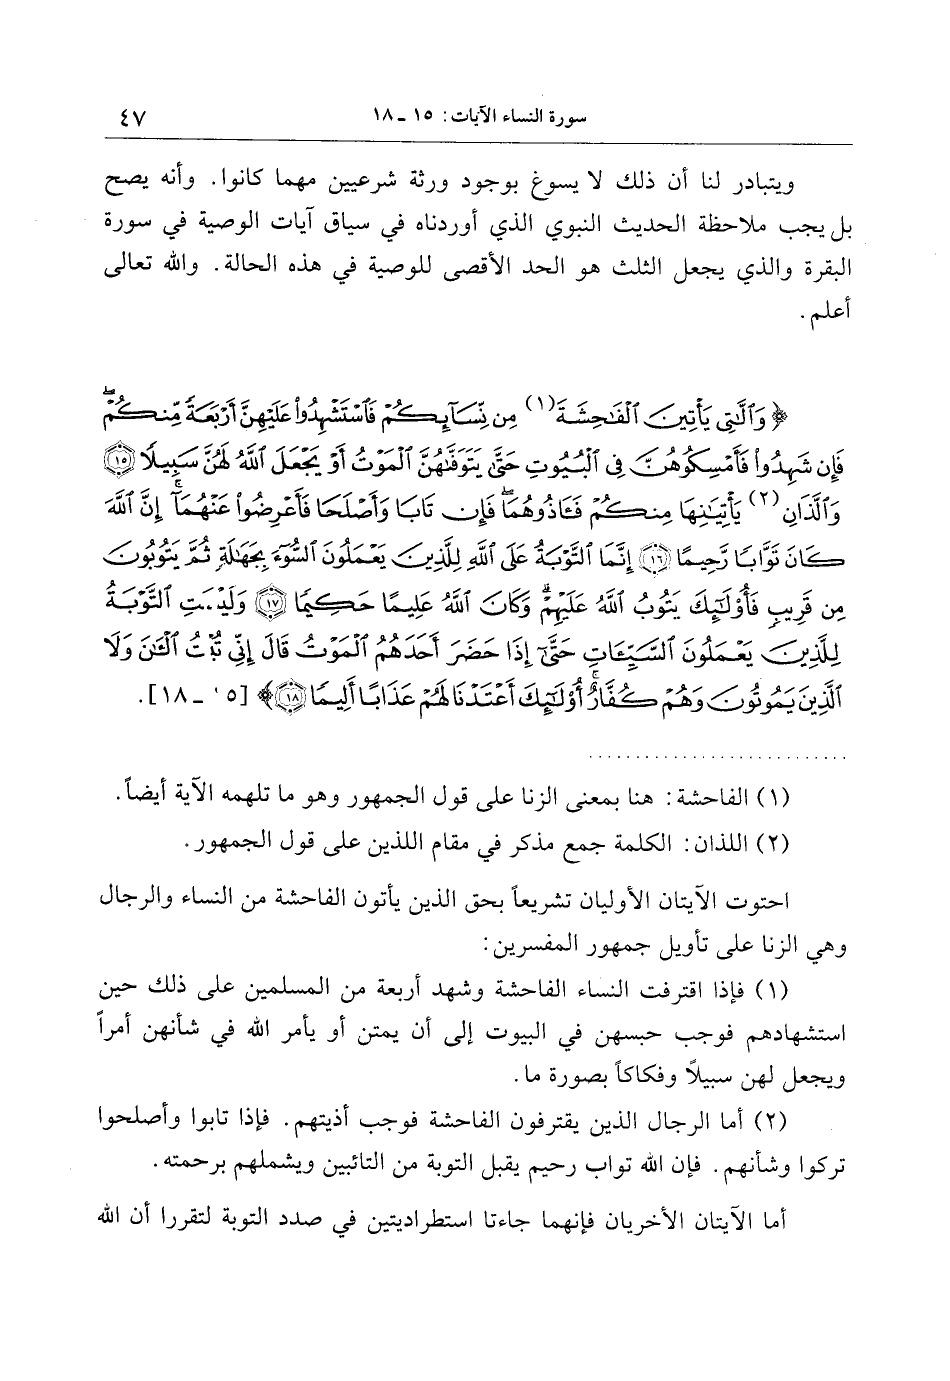 سورة النساء الآيات: ١٥ ـ ١٨ ٤٧
ويتبادر لنا أن ذلك لا يسوغ بوجود ورثة شرعيين مهما كانوا. وأنه يصح
بل يجب ملاحظة الحديث النبوي الذي أوردناه في سياق آيات الوصية في سورة
البقرة والذي يجعل الثلث هو الحد الأقصى للوصية في هذه الحالة. والله تعالى
أعلم.
﴿ وَٱلَّٰتِي يَأْتِينَ ٱلْفَٰحِشَةَ (١) مِن نِّسَآئِكُمْ فَٱسْتَشْهِدُوا۟ عَلَيْهِنَّ أَرْبَعَةً مِّنكُمْ ۖ
فَإِن شَهِدُوا۟ فَأَمْسِكُوهُنَّ فِي ٱلْبُيُوتِ حَتَّىٰ يَتَوَفَّىٰهُنَّ ٱلْمَوْتُ أَوْ يَجْعَلَ ٱللَّهُ لَهُنَّ سَبِيلًا ١٥
وَٱلَّذَانِ (٢) يَأْتِيَٰنِهَا مِنكُمْ فَـَٔاذُوهُمَا ۖ فَإِن تَابَا وَأَصْلَحَا فَأَعْرِضُوا۟ عَنْهُمَآ ۗ إِنَّ ٱللَّهَ
كَانَ تَوَّابًا رَّحِيمًا ١٦ إِنَّمَا ٱلتَّوْبَةُ عَلَى ٱللَّهِ لِلَّذِينَ يَعْمَلُونَ ٱلسُّوٓءَ بِجَهَٰلَةٍ ثُمَّ يَتُوبُونَ
مِن قَرِيبٍ فَأُو۟لَٰٓئِكَ يَتُوبُ ٱللَّهُ عَلَيْهِمْ ۗ وَكَانَ ٱللَّهُ عَلِيمًا حَكِيمًا ١٧ وَلَيْسَتِ ٱلتَّوْبَةُ
لِلَّذِينَ يَعْمَلُونَ ٱلسَّيِّـَٔاتِ حَتَّىٰٓ إِذَا حَضَرَ أَحَدَهُمُ ٱلْمَوْتُ قَالَ إِنِّي تُبْتُ ٱلْـَٰٔنَ وَلَا
ٱلَّذِينَ يَمُوتُونَ وَهُمْ كُفَّارٌ ۚ أُو۟لَٰٓئِكَ أَعْتَدْنَا لَهُمْ عَذَابًا أَلِيمًا ١٨ ﴾ [١٥ ـ ١٨].
(١) الفاحشة: هنا بمعنى الزنا على قول الجمهور وهو ما تلهمه الآية أيضاً.
(٢) اللذان: الكلمة جمع مذكر في مقام اللذين على قول الجمهور.
احتوت الآيتان الأوليان تشريعاً بحق الذين يأتون الفاحشة من النساء والرجال
وهي الزنا على تأويل جمهور المفسرين:
(١) فإذا اقترفت النساء الفاحشة وشهد أربعة من المسلمين على ذلك حين
استشهادهم فوجب حبسهن في البيوت إلى أن يمتن أو يأمر الله في شأنهن أمراً
ويجعل لهن سبيلاً وفكاكاً بصورة ما.
(٢) أما الرجال الذين يقترفون الفاحشة فوجب أذيتهم. فإذا تابوا وأصلحوا
تركوا وشأنهم. فإن الله تواب رحيم يقبل التوبة من التائبين ويشملهم برحمته.
أما الآيتان الأخريان فإنهما جاءتا استطراديتين في صدد التوبة لتقررا أن الله